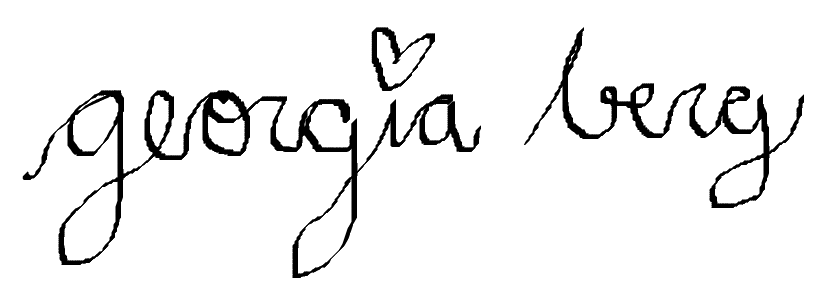 georgia berg